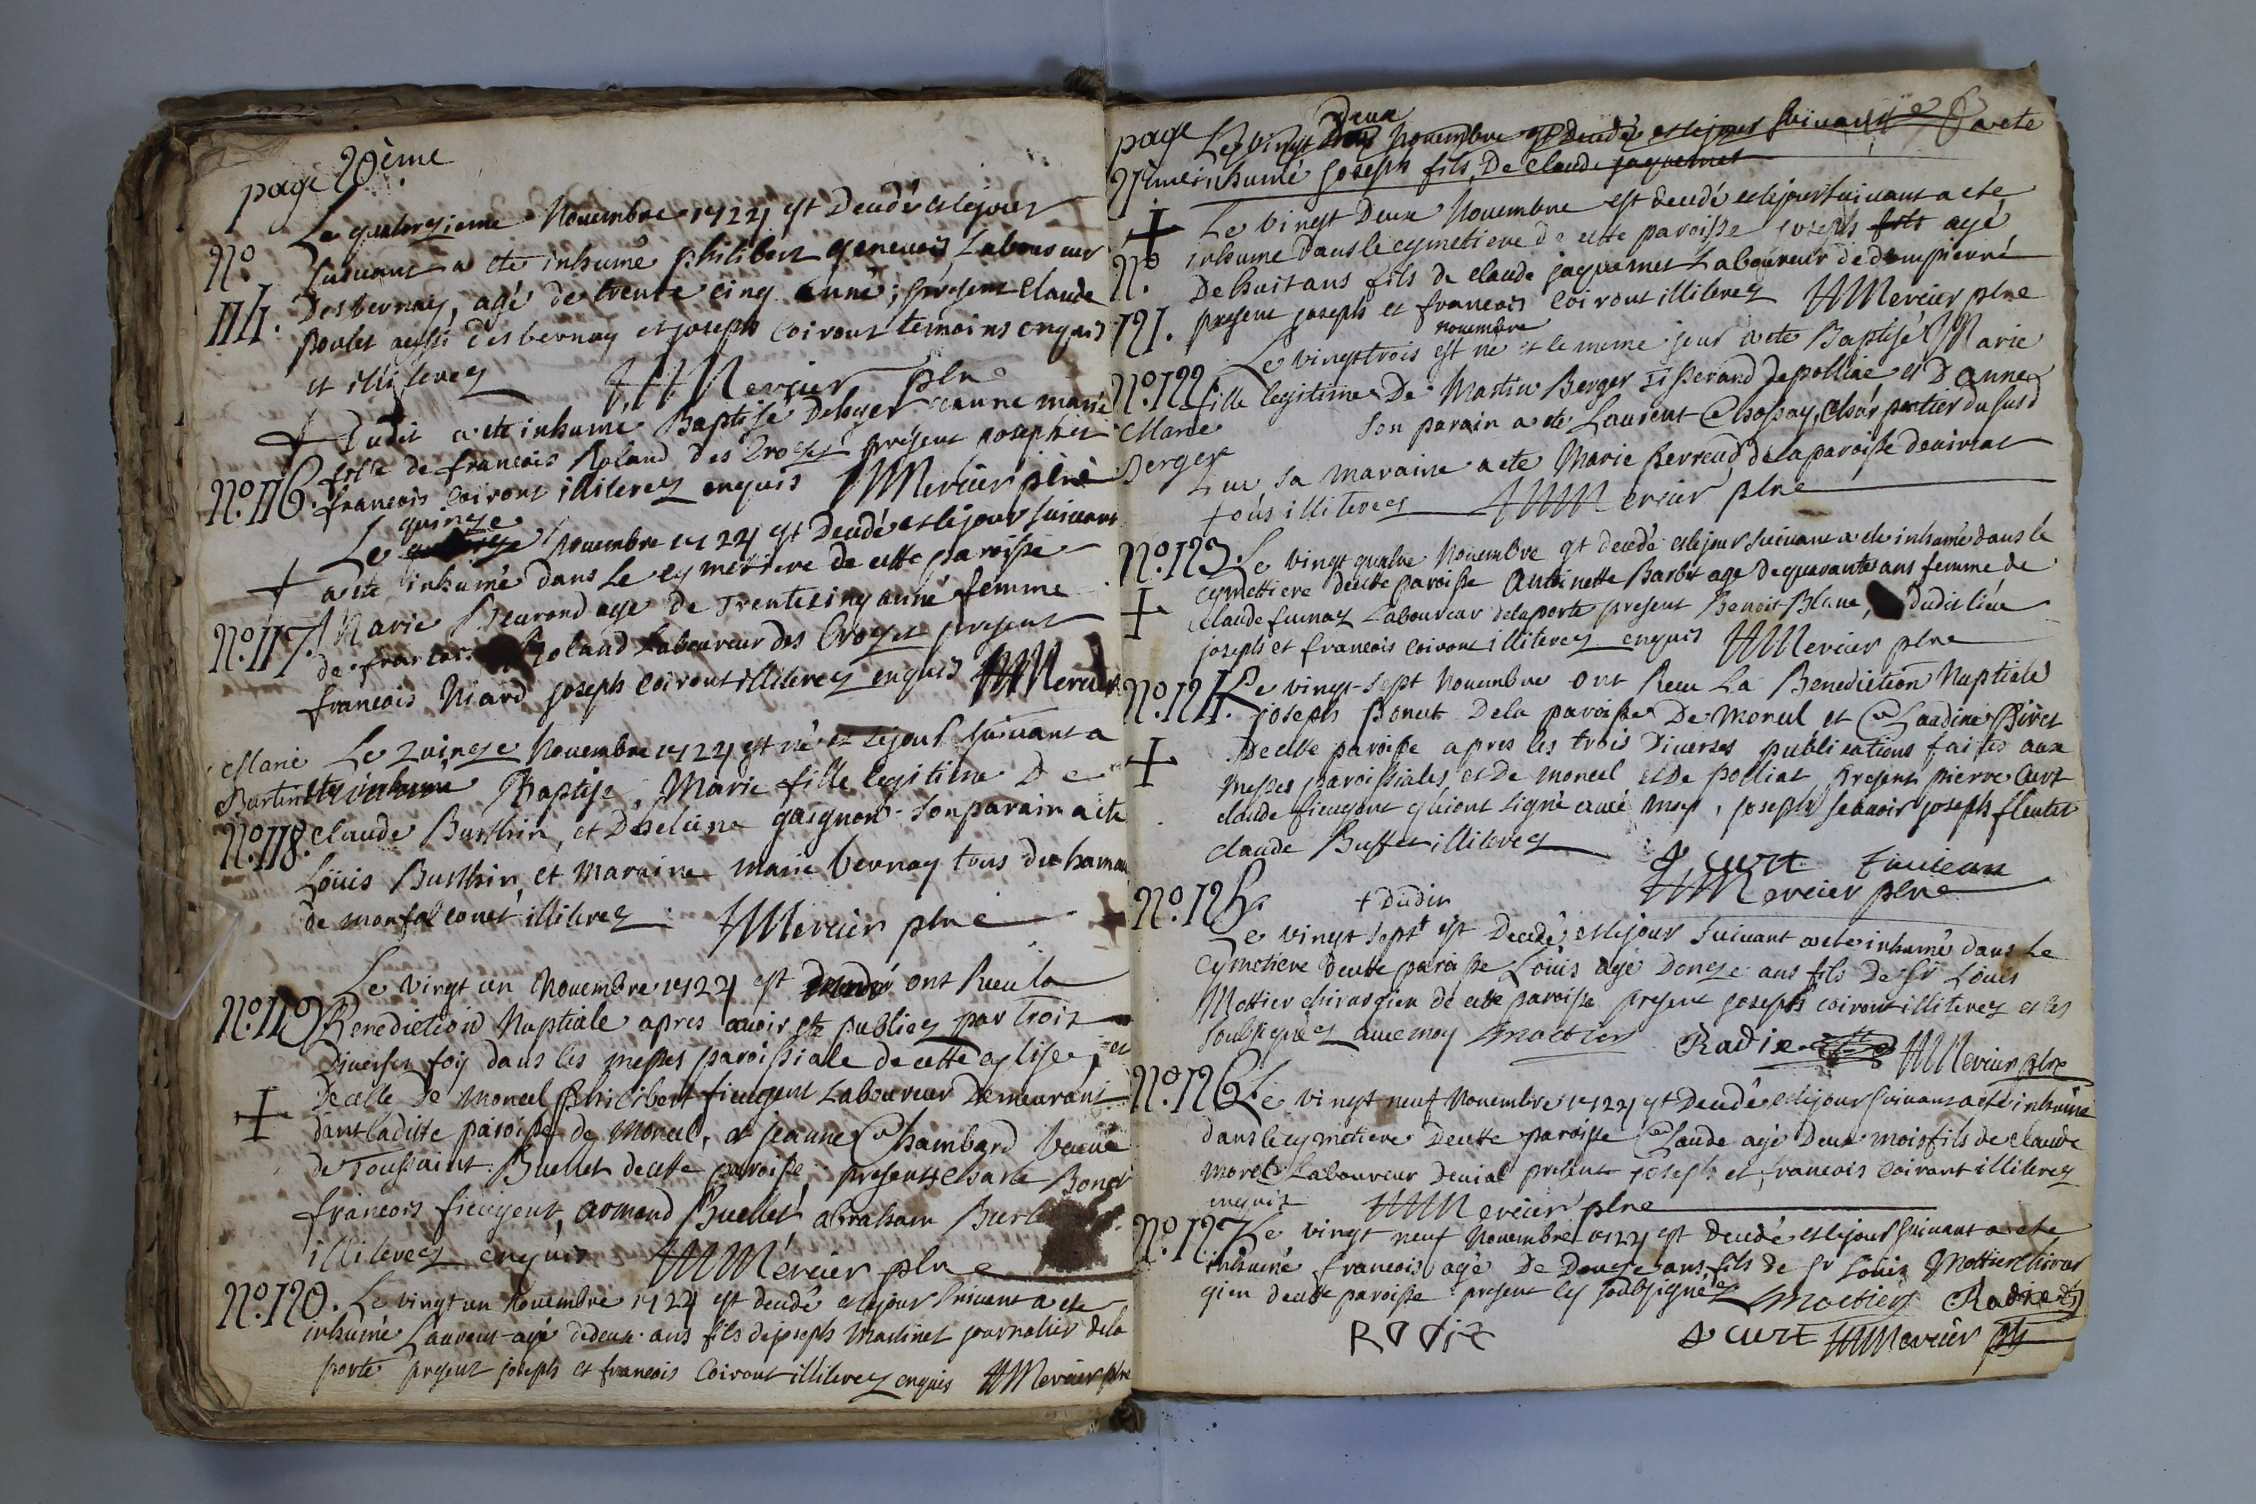 page 20ème
Le quatorzieme Novembre 1724 est Decedé et le jour
No suivant a ete inhumé philibert genevois Laboureur
114. Des vernay, agé de trente cinq année; present Claude
poulet aussi des vernay et joseph Coiront temoins enquis
et illiterez HMercier ptre
+ Dudit a ete inhumé Baptisé Deloger jeanne marie
fille de francois Roland des Croses présent joseph et
No.116. francois Coiront illiterez enquis HMercier ptre
quinze
Le Novembre 1724 est Decedé et le jour suivant
+ a ete inhumé dans Le cymetiere de cette paroisse
No.117. Marie age de Trente cinq année femme
de francois Roland Laboureur des Croses present
francois Niard joseph Coiront illiterez enquis HMercier
Marie Le Quinze Novembre 1724 est né et le jour suivant a
Burtin ete inhumé Baptisé Marie fille legitime De
No.118. Claude Burthin, et Decelüine gaignon son parain a ete
Loüis Burthin, et Maraine marie Vernay tous du hameau
de monfalconet illiterez HMercier ptre
Le vingt un Novembre 1724 est decedé ont Receu la
No.119 Benediction Nuptiale apres avoir ete publiez par Trois
Diverses fois dans les messes paroissiale de cette eglise, et
De celle De Moncel Philibert fieugent Laboureur Demeurant
+ dans ladite paroisse de Moncel, et jeanne Chambard veuve
de Toussaint Buellet de cette paroisse, present Charle Bonet
francois fieugent, armand Buellet abraham
illiterez enquis HMercier ptre
No.120. Le vingt un Novembre 1724 est decedé et le jour suivant a ete
inhumé Laurent agé de deux ans fils de joseph Martinet journalier de la
porte present joseph et francois Coiront illiterez enquis HMercier ptre
page Le vingt Deux Novembre est decedé et le jour suivant a ete
21ème inhumé joseph fils De Claude jaquemet
+ Le vingt Deux Novembre est decedé et le jour suivant a ete
No inhumé dans le cymetiere de cette paroisse joseph fils agé
De huit ans fils de Claude jaquemet Laboureur de dompierre
121. present joseph et francois Coiront illiterez HMercier ptre
novembre
No.122 Le vingt trois est né et le meme jour a ete Baptisé Marie
fille legitime De Martin Berger Tisserand de polliac et D'anne
Marie son parain a ete Laurent Chossay, Charpentier du susd
Berger Lieu sa maraine a ete Marie Perreud de la paroisse de viriat
tous illiterez HMercier ptre
No.123. Le vingt quatre Novembre est decedé et le jour suivant a ete inhumé dans le
+ cymettiere de cette paroisse Antoinette Barbet age de quarante ans femme de
Claude furnay Laboureur de la porte present Benoit Blanc, dudit lieu
joseph et francois Coiront illiterez enquis HMercier ptre
No.124. Le vingt-sept Novembre ont Receu La Benediction Nuptiale
joseph Bonet De la paroisse De Moncel et Claudine Pivet
+ De cette paroisse apres les trois Diverses publications faites aux
messes paroissiales et de Moncel et De Polliat present pierre Curt
claude fieugent qui ont signé avec moy, joseph joseph
claude Buffet illiterez
P curt
HMercier ptre
No.125. + Dudit
Le vingt sept est Decedé et le jour suivant a ete inhumé dans le
Cymetiere de cette paroisse Loüis agé Douze ans fils De sr Loüis
Mottier chirurgien de cette paroisse present joseph coiront illiterez et les
soubsignez avec moy Mottier Radix HMercier ptre
No.126 Le vingt neuf Novembre 1724 est Decedé et le jour suivant a ete inhumé
dans le cymetiere De cette paroisse Claude agé Deux mois fils de claude
morel Laboureur de vial present joseph et francois Coiront illiterez
enquis HMercier ptre
No.127. Le vingt neuf Novembre 1724 est Decedé et le jour suivant a ete
inhumé francois agé De Douze ans fils de sr Loüis Mottier chirur
gien de cette paroisse present les soubsignéz Mottier Radix
Radix P curt HMercier ptre